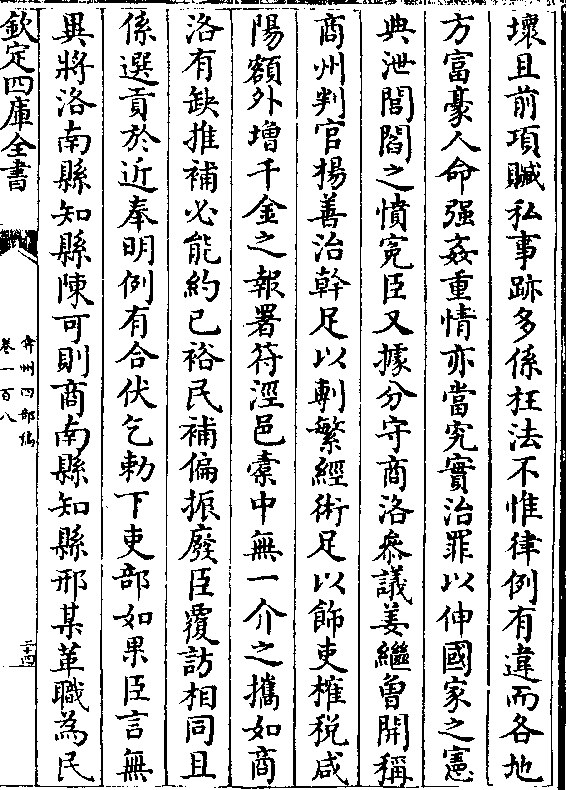 壞且前項贓私事跡多係枉法不惟律例有違而各地
方富豪人命强姦重情亦當究實治罪以伸國家之憲
典泄閭閻之憤寃臣又據分守商洛叅議姜繼曾開稱
商州判官楊善治幹足以剸繁經術足以飾吏榷税咸
陽額外增千金之報署符涇邑槖中無一介之攜如商
洛有缺推補必能約已裕民補偏振廢臣覆訪相同且
係選貢於近奉明例有合伏乞勅下吏部如果臣言無
異將洛南縣知縣陳可則商南縣知縣邢某革職為民
欽定四庫全書
弇州四部稿
卷一百八
二十四